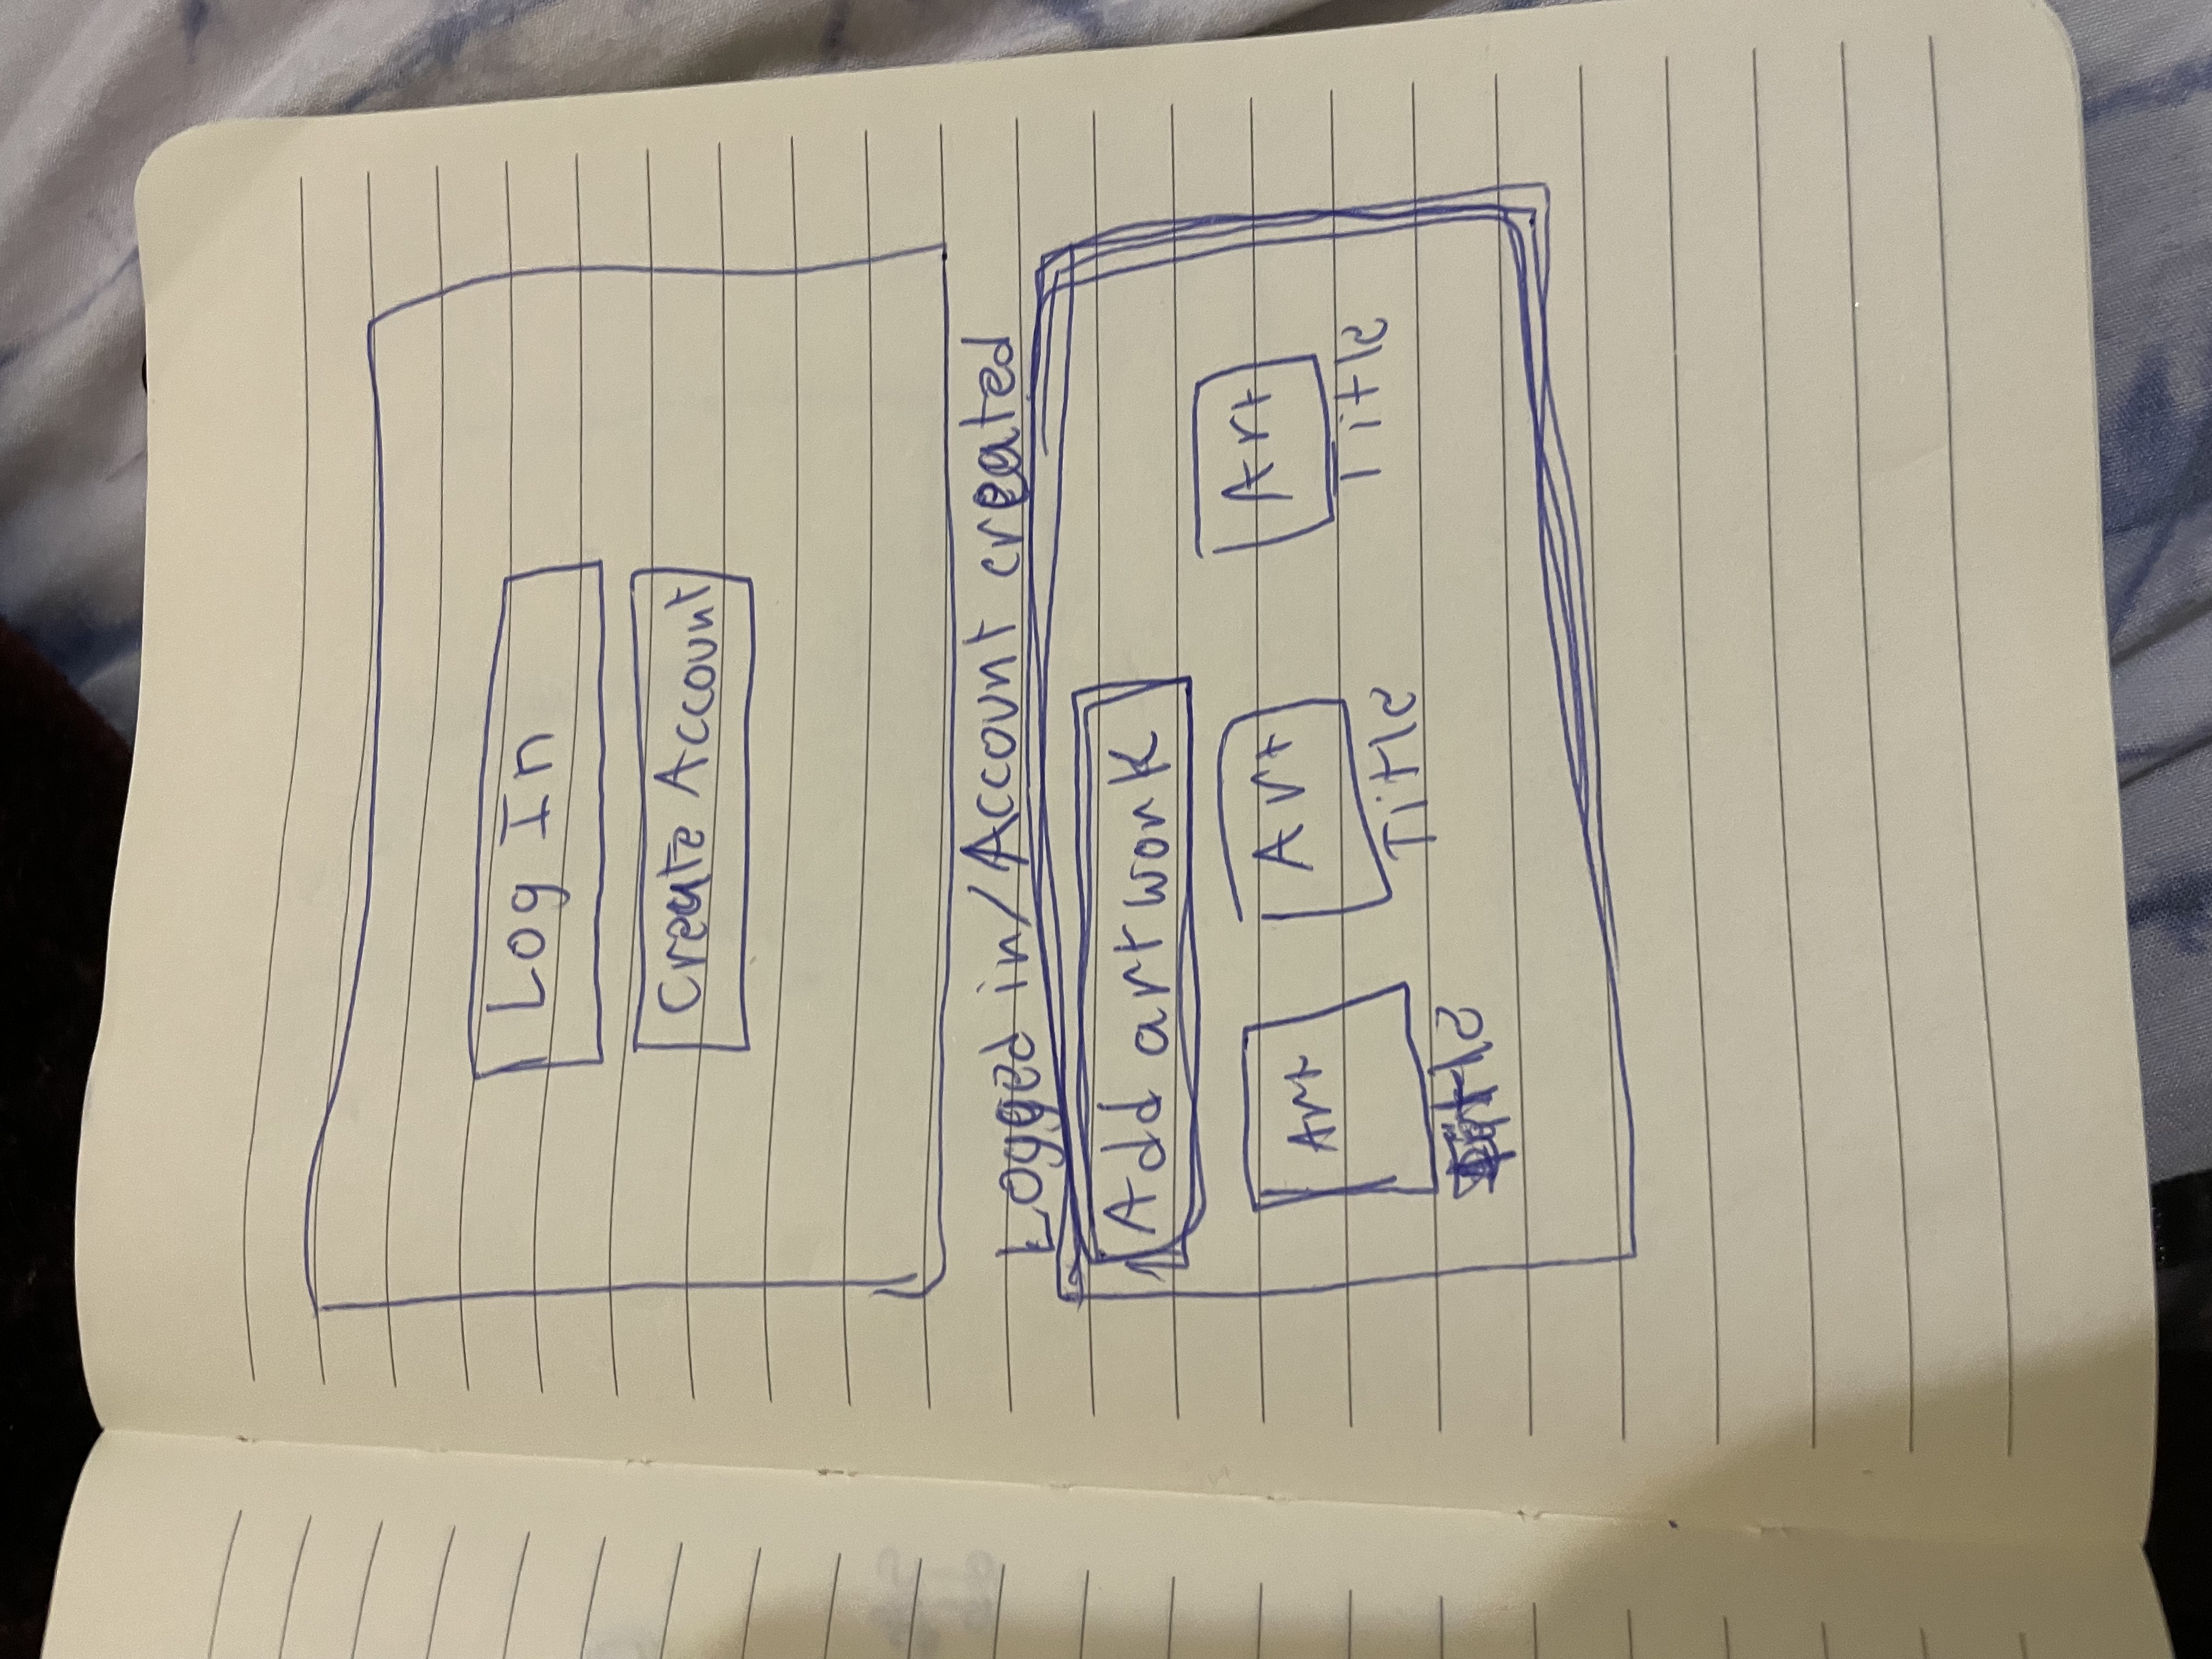 Log In
Create Account
Logged in/Account created
Add artwork
Art Art Art
Title Title Title